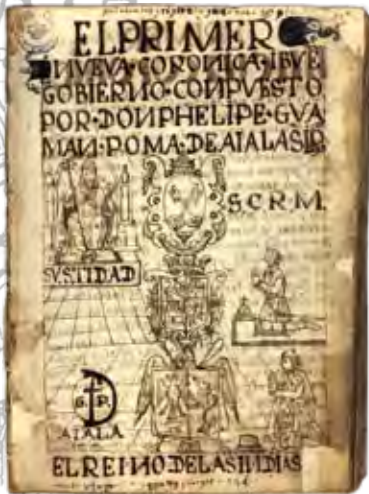 EL PRIMER
NVEVA·CORONICA·IBVE
GOBIERNO·CONPVESTO
POR·DON PHELIPE·GVA
MAN·POMA·DEAIALA
S.C.R.M.
SVSTIDAD
AIALA
EL REINO DE LAS INDIAS